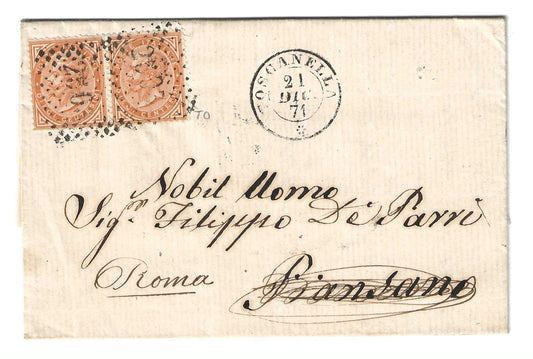 TOSCANELLA
21
DIC.
71
TO
Nobil Uomo
Sigr. Filippo De Parri
Roma
Piansano